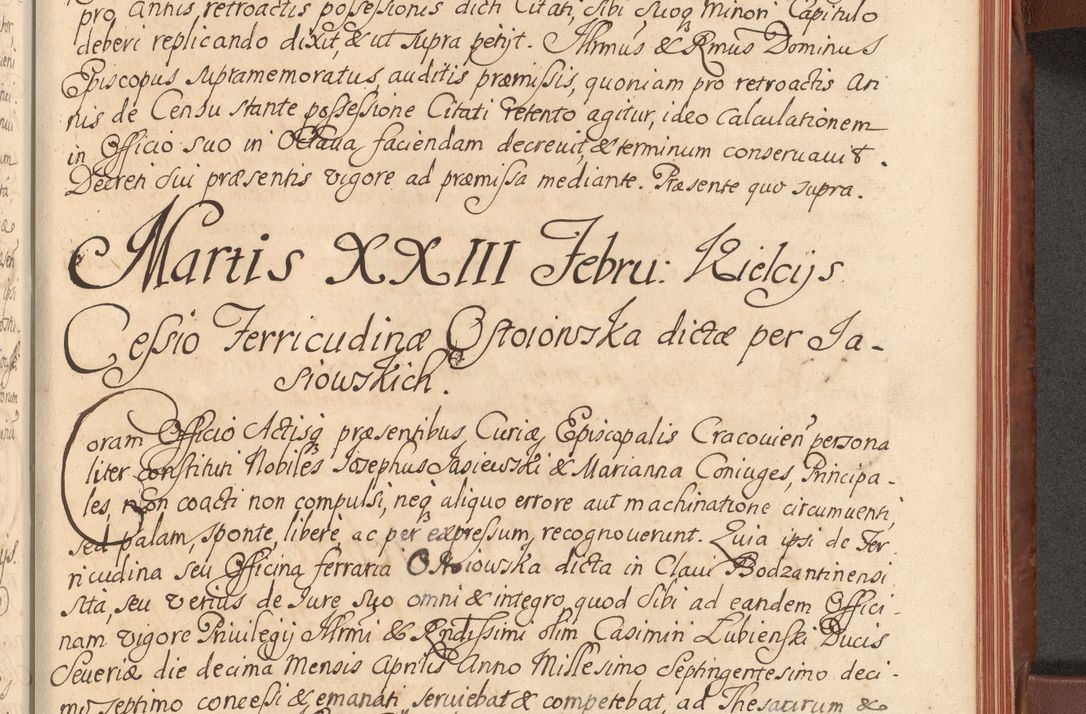 pro Annis retroactis possessionis dicti Citati, sibi suoq Minori Capitulo
deberi replicando dixit, & ut supra petijt. Illrmus & Rmus Dominus
Episcopus supramemoratus, auditis præmissis, quoniam pro retroactis an
nis de Censu stante possessione Citati retento agitur, ideo calculationem
in Officio suo in Octava faciendam decrevit, & terminum conservavit.
Decreti sui præsentis vigore ad præmissa mediante. Præsente quo supra.
Martis XXIII Febru: Kielcijs
Cessio Ferricudinæ Ostoiowska dictæ per Ja-
siowskich.
Coram Officio Actisq præsentibus Curiæ Episcopalis Cracovien persona
liter constituti Nobiles Josephus Jasiewski & Marianna Coniuges, Principa-
les, non coacti non compulsi, neq aliquo errore aut machinatione circumventi,
sed palam, sponte, liberè ac per expressum, recognoverunt. Quia ipsi de Fer
ricudina seu Officina ferraria Ostoiowska dicta in Clavi Bodzantinensi
sita, seu verius de Jure suo omni & integro, quod sibi ad eandem Offici-
nam vigore Privilegij Illrmi & Rndissimi olim Casimiri Łubienski Ducis
Severiæ die decima Mensis Aprilis Anno Millesimo Septingentesimo deci-
mo septimo concessi & emanati, serviebat & competebat, ad Thesaurum &